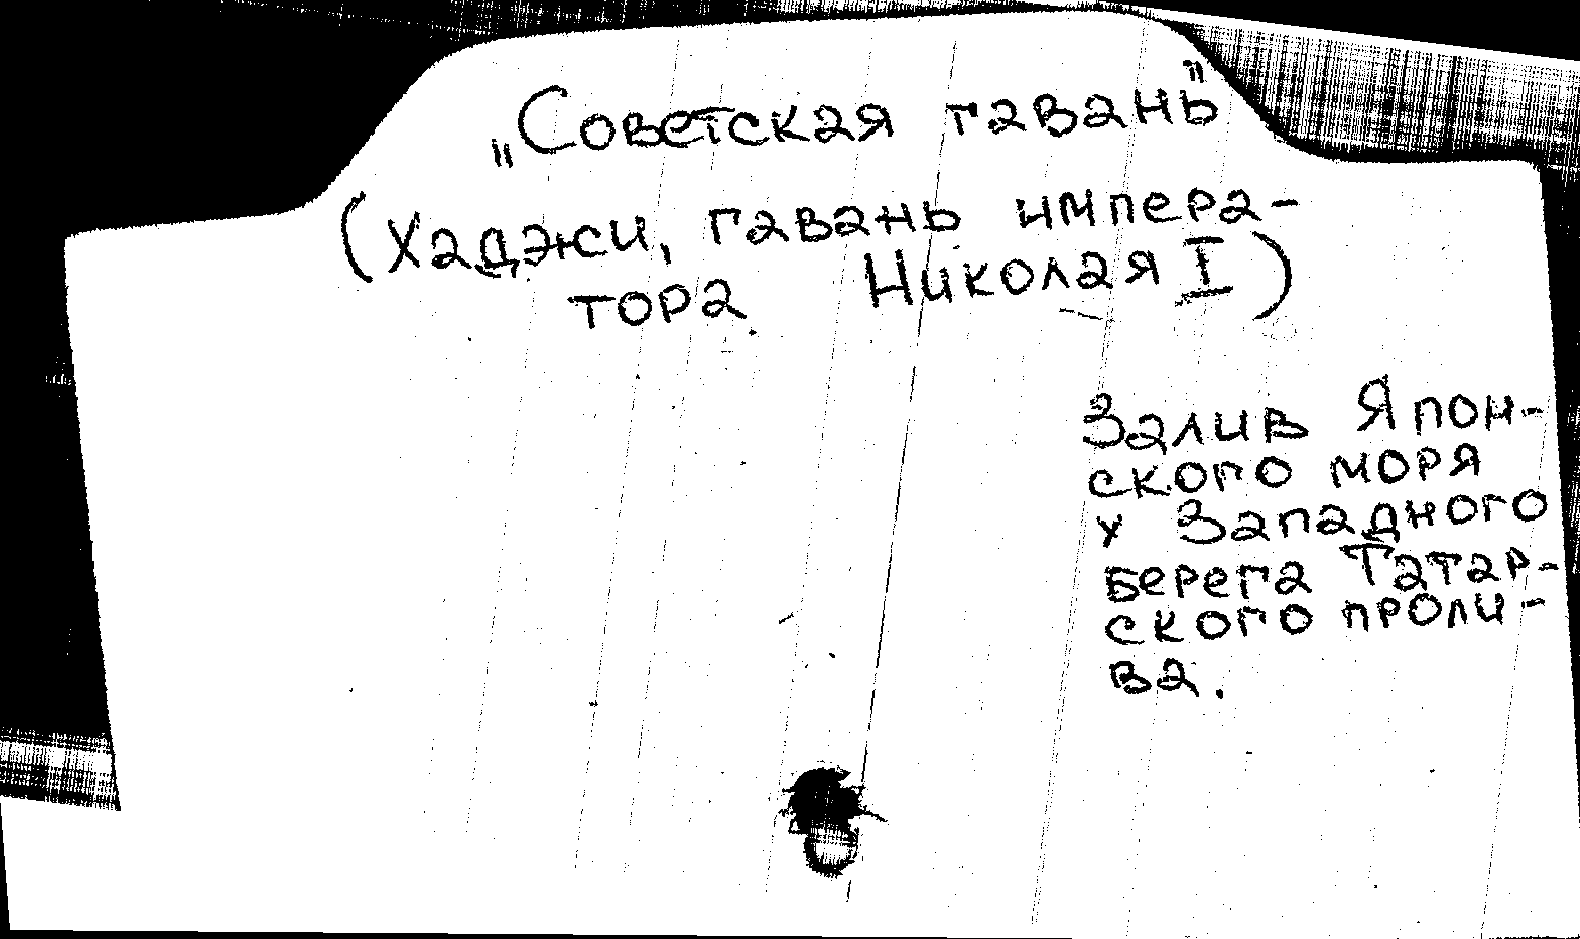 „Советская гавань”
(Хаджи, гавань импера-
тора Николая I)
Залив Япон-
ского моря
у Западного
берега Татар-
ского проли-
ва.